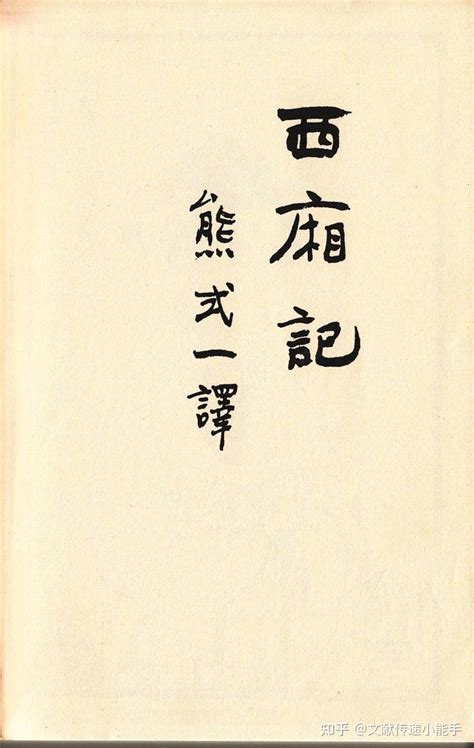 西廂記
熊式一譯
知乎 @文献传递小能手